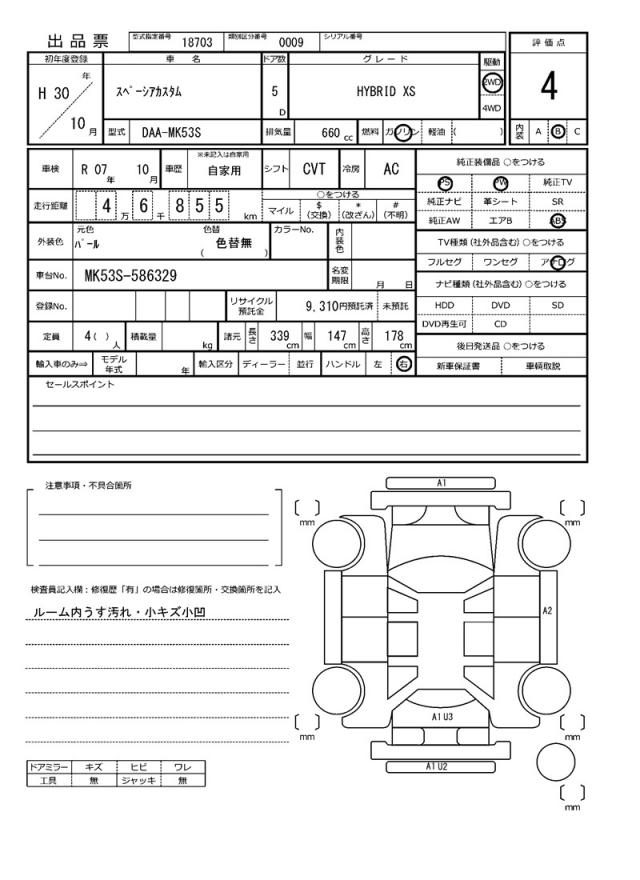 出品票
型式指定番号 18703 類別区分番号 0009 シリアル番号
評価点
4
初年度登録 車名 ドア数 グレード 駆動
H 30 年 10 月
スペーシアカスタム
5 D
HYBRID XS
2WD
4WD
型式 DAA-MK53S 排気量 660 cc 燃料 ガソリン 軽油 ( )
内装 A B C
車検 R 07 年 10 月 車歴 ※未記入は自家用 自家用 シフト CVT 冷房 AC
純正装備品 ○をつける
PS PW 純正TV
純正ナビ 革シート SR
純正AW エアB ABS
走行距離 4 万 6 千 8 5 5 km
○をつける
マイル $ (交換) * (改ざん) # (不明)
外装色 元色 パール 色替 ( 色替無 ) カラーNo. 内装色
TV種類 (社外品含む) ○をつける
フルセグ ワンセグ アナログ
車台No. MK53S-586329 名変期限 月 日
ナビ種類 (社外品含む) ○をつける
HDD DVD SD
DVD再生可 CD
登録No. リサイクル預託金 9,310円預託済 未預託
定員 4 ( ) 人 積載量 kg 諸元 長さ 339 cm 幅 147 cm 高さ 178 cm
後日発送品 ○をつける
新車保証書 車輌取説
輸入車のみ⇒ モデル年式 年 輸入区分 ディーラー 並行 ハンドル 左 右
セールスポイント
注意事項・不具合箇所
検査員記入欄：修復歴「有」の場合は修復箇所・交換箇所を記入
ルーム内うす汚れ・小キズ小凹
A1
mm
mm
A2
A1U3
mm
mm
A1U2
mm
ドアミラー キズ ヒビ ワレ
工具 無 ジャッキ 無